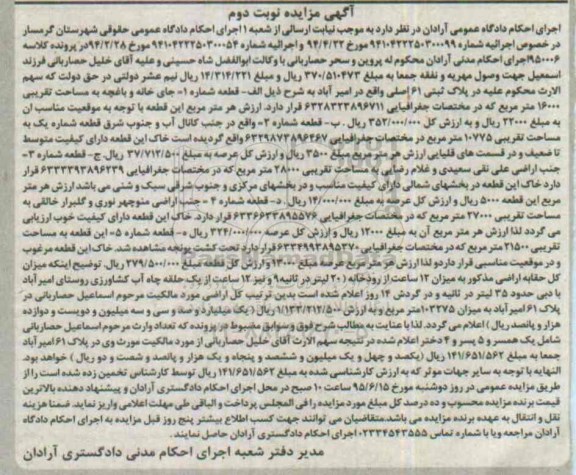 آگهی مزایده نوبت دوم
اجرای احکام دادگاه عمومی آرادان در نظر دارد به موجب نیابت ارسالی از شعبه ۱ اجرای احکام دادگاه عمومی حقوقی شهرستان گرمسار
در خصوص اجرائیه شماره ۹۴۱۰۴۲۲۲۵۰۳۰۰۰۹۹ مورخ ۹۴/۴/۲۲ و اجرائیه شماره ۹۴۱۰۴۲۲۲۵۰۳۰۰۰۵۴ مورخ ۹۴/۲/۲۸ در پرونده کلاسه
۹۵۰۰۰۶ اجرای احکام مدنی آرادان محکوم له پروین و سحر حصاربانی با وکالت ابوالفضل شاه حسینی و علیه آقای خلیل حصاربانی فرزند
اسمعیل جهت وصول مهریه و نفقه جمعا به مبلغ ۳۷۰/۵۱۰/۴۷۳ ریال و مبلغ ۱۴/۳۱۴/۲۲۱ ریال نیم عشر دولتی در حق دولت که سهم
الارث محکوم علیه در پلاک ثبتی ۶۱ اصلی واقع در امیر آباد به شرح ذیل الف- قطعه شماره ۱- جای خانه و باغچه به مساحت تقریبی
۱۶۰۰۰ متر مربع که در مختصات جغرافیایی ۶۳۲۸۳۲۳۸۹۶۷۱۱ قرار دارد. ارزش هر متر مربع این قطعه با توجه به موقعیت مناسب ان
به مبلغ ۲۲۰۰۰ ریال و به ارزش کل ۳۵۲/۰۰۰/۰۰۰ ریال . ب- قطعه شماره ۲- واقع در جنب کانال آب و جنوب شرق قطعه شماره یک به
مساحت تقریبی ۱۰۷۷۵ متر مربع در مختصات جغرافیایی ۶۳۲۹۸۷۳۸۹۶۴۶۷ واقع گردیده است خاک این قطعه دارای کیفیت متوسط
تا ضعیف و در قسمت های قلیایی ارزش هر متر مربع مبلغ ۳۵۰۰ ریال و ارزش کل عرصه به مبلغ ۳۷/۷۱۲/۵۰۰ ریال. ج- قطعه شماره ۳-
جنب اراضی علی نقی سعیدی و غلام رضایی به مساحت تقریبی ۲۸۰۰۰ متر مربع که در مختصات جغرافیایی ۶۳۳۳۳۹۳۸۹۶۲۳۹ قرار
دارد خاک این قطعه در بخشهای شمالی دارای کیفیت مناسب و در بخشهای مرکزی و جنوب شرقی سبک و شنی می باشد ارزش هر متر
مربع این قطعه ۵۰۰۰ ریال و ارزش کل عرصه به مبلغ ۱۴/۰۰۰/۰۰۰ ریال . د- قطعه شماره ۴ - جنب اراضی منوچهر نوری و گلبرار خالقی به
مساحت تقریبی ۲۷۰۰۰ متر مربع که در مختصات جغرافیایی ۶۳۳۶۶۳۳۸۹۵۵۷۶ قرار دارد. خاک این قطعه دارای کیفیت خوب ارزیابی
می گردد لذا ارزش هر متر مربع آن به مبلغ ۱۲۰۰۰ ریال و ارزش کل عرصه ۳۲۴/۰۰۰/۰۰۰ ریال ه- قطعه شماره ۵- این قطعه به مساحت
تقریبی ۲۱۵۰۰ متر مربع که در مختصات جغرافیایی ۶۳۳۴۹۹۳۸۹۵۳۷۰ قرار دارد تحت کشت یونجه مشاهده شد. خاک این قطعه مرغوب
و در موقعیت مناسبی قرار دارد و لذا ارزش هر متر مربع عرصه مبلغ ۱۳۰۰۰ و ارزش کل قطعه مبلغ ۲۷۹/۵۰۰/۰۰۰ ریال. توضیح اینکه میزان
کل حقابه اراضی مذکور به میزان ۱۲ ساعت از رودخانه (۲۰ لیتر در ثانیه) و نیز ۱۲ ساعت از یک حلقه چاه آب کشاورزی روستای امیر آباد
با دبی حدود ۳۵ لیتر در ثانیه و در گردش ۱۴ روز اعلام شده است بدین ترتیب کل اراضی مورد مالکیت مرحوم اسماعیل حصاربانی در
پلاک ۶۱ امیر آباد به میزان ۱۰۳۲۷۵ متر مربع و به ارزش ۱/۱۳۳/۲۱۲/۵۰۰ ریال (یک میلیارد و صد و سی و سه میلیون و دویست و دوازده
هزار و پانصد ریال) اعلام می گردد. لذا با عنایت به مطالب شرح فوق و سوابق مضبوط در پرونده که تعداد وارث مرحوم اسماعیل حصاربانی
شامل یک همسر و ۵ پسر و ۴ دختر اعلام شده در نتیجه سهم الارث آقای خلیل حصاربانی از مورد مالکیت مورث وی در پلاک ۶۱ امیر آباد
جمعا به مبلغ ۱۴۱/۶۵۱/۵۶۲ ریال (یکصد و چهل و یک میلیون و ششصد و پنجاه و یک هزار و پانصد و شصت و دو ریال) خواهد بود.
النهایه با توجه به سایر جهات موثر که به ارزش کارشناسی شده به مبلغ ۱۴۱/۶۵۱/۵۶۲ ریال توسط کارشناس تخمین زده شده است را از
طریق مزایده عمومی در روز دوشنبه مورخ ۹۵/۶/۱۵ ساعت ۱۰ صبح در محل اجرای احکام دادگستری آرادان و پیشنهاد دهنده بالاترین
قیمت برنده مزایده محسوب و ده درصد کل مبلغ مورد مزایده را فی المجلس پرداخت و الباقی طی مهلت اعلامی واریز نماید. ضمنا هزینه
نقل و انتقال به عهده برنده مزایده می باشد. متقاضیان می توانند جهت کسب اطلاع بیشتر پنج روز قبل مزایده به اجرای احکام دادگاه
آرادان مراجعه و یا با شماره تماس ۰۲۳۳۴۵۴۳۵۵۵ اجرای احکام دادگستری آرادان حاصل نمایند.
مدیر دفتر شعبه اجرای احکام مدنی دادگستری آرادان